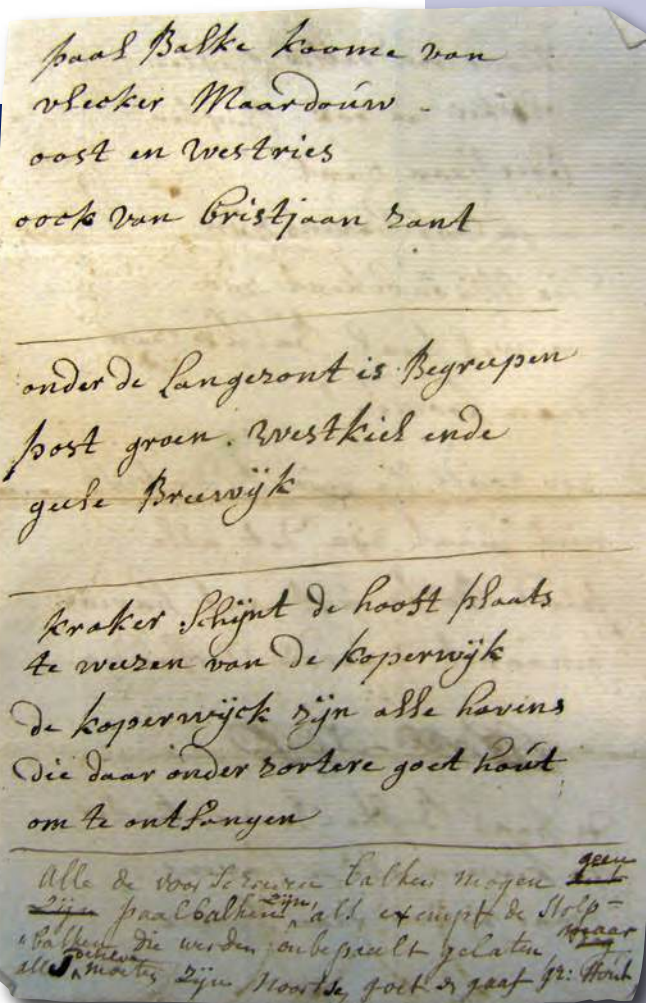 paal Balke koome van
vlecker Maardouw
oost en westries
oock van Cristjaan zant
onder de Langezont is Begreepen
post groen. westkiel ende
geele Breewijk
kraker Schijnt de hooft plaats
te weezen van de koperwijk
de koperwijck zijn alle havens
die daar onder zortere goet hout
om te ontfangen
Alle de voor balken mogen geen
zijn paalbalken zijn, als exempt de Stolp=
balken die werden onbepaelt gelaten maar
alle moeten zijn Noortse goet & gaaf gr: Hout